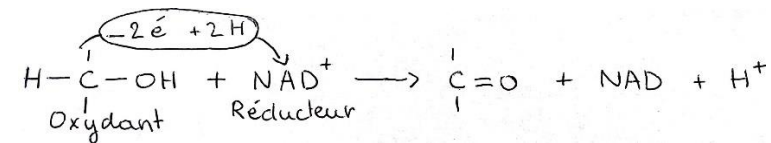 - 2 é + 2 H
H - C - OH + NAD⁺ ⟶ C = O + NAD + H⁺
Oxydant Réducteur